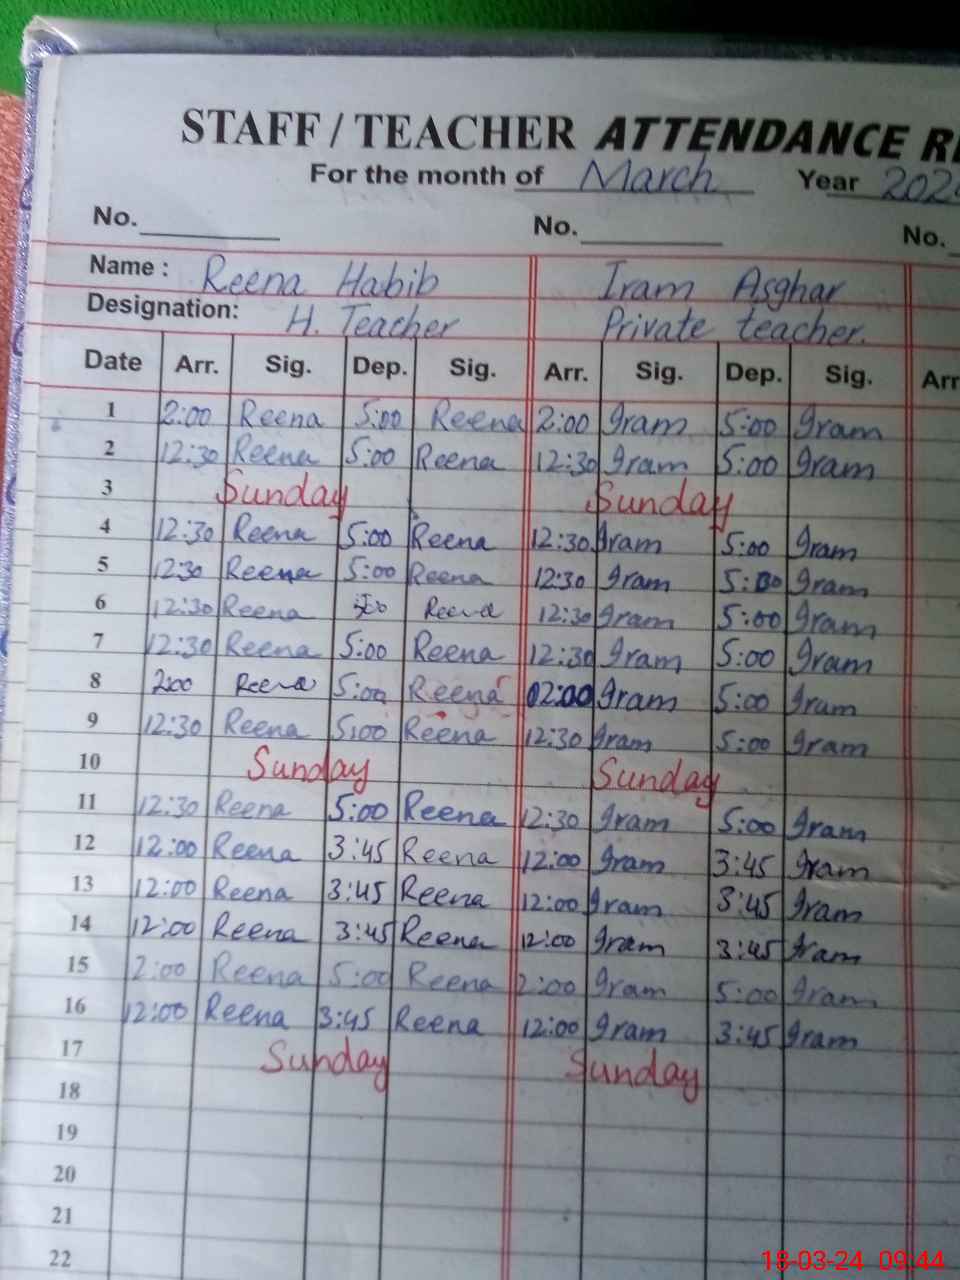 STAFF / TEACHER ATTENDANCE RE
For the month of March Year 202
No. No. No.
Name : Reena Habib Iram Asghar
Designation: H. Teacher Private teacher.
Date Arr. Sig. Dep. Sig. Arr. Sig. Dep. Sig. Arr
1 2:00 Reena 5:00 Reena 2:00 Iram 5:00 Iram
2 12:30 Reena 5:00 Reena 12:30 Iram 5:00 Iram
3 Sunday Sunday
4 12:30 Reena 5:00 Reena 12:30 Iram 5:00 Iram
5 12:30 Reena 5:00 Reena 12:30 Iram 5:00 Iram
6 12:30 Reena Reena 12:30 Iram 5:00 Iram
7 12:30 Reena 5:00 Reena 12:30 Iram 5:00 Iram
8 2:00 Reena 5:00 Reena 02:00 Iram 5:00 Iram
9 12:30 Reena 5:00 Reena 12:30 Iram 5:00 Iram
10 Sunday Sunday
11 12:30 Reena 5:00 Reena 12:30 Iram 5:00 Iram
12 12:00 Reena 3:45 Reena 12:00 Iram 3:45 Iram
13 12:00 Reena 3:45 Reena 12:00 Iram 3:45 Iram
14 12:00 Reena 3:45 Reena 12:00 Iram 3:45 Iram
15 2:00 Reena 5:00 Reena 2:00 Iram 5:00 Iram
16 12:00 Reena 3:45 Reena 12:00 Iram 3:45 Iram
17 Sunday Sunday
18
19
20
21
22
18-03-24 09:44